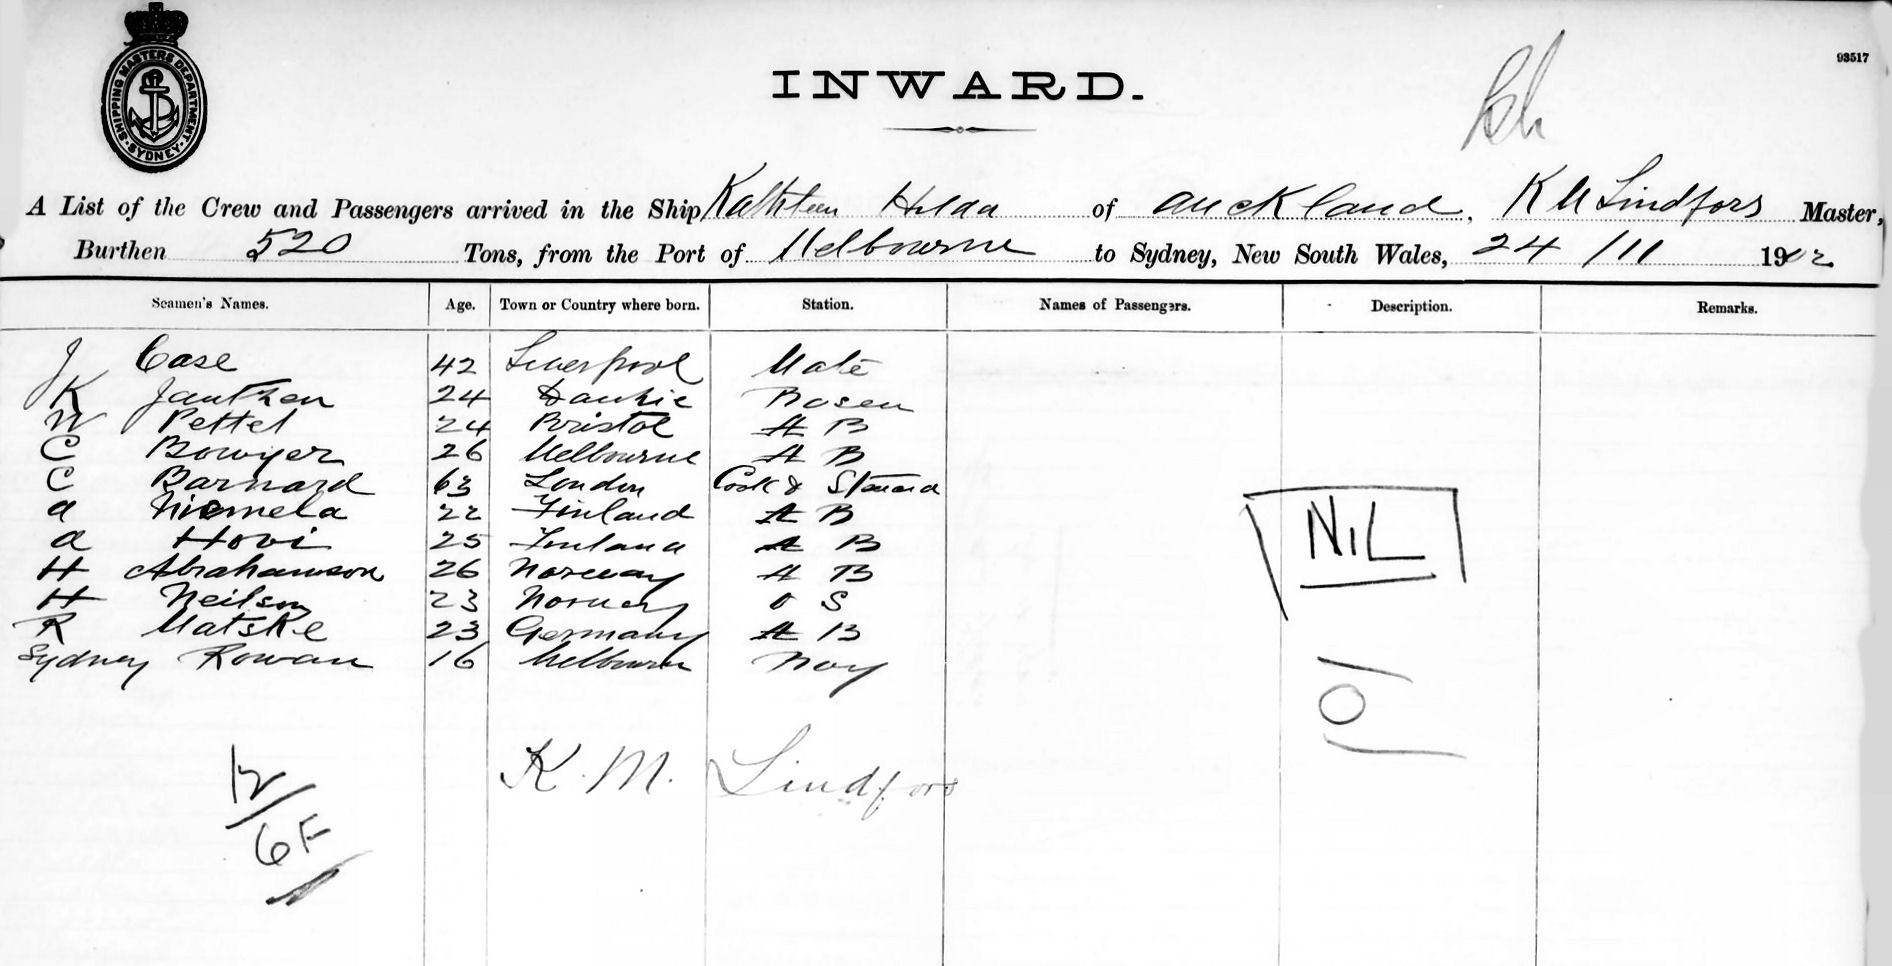 SHIPPING MASTERS DEPARTMENT · SYDNEY ·
93517
INWARD.
A List of the Crew and Passengers arrived in the Ship Kathleen Hilda of Auckland, K M Lindfors Master,
Burthen 520 Tons, from the Port of Melbourne to Sydney, New South Wales, 24/11 1902
Seamen's Names. Age. Town or Country where born. Station. Names of Passengers. Description. Remarks.
J Case 42 Liverpool Mate
K Jantzen 24 Bosen
W Pettet 24 Bristol A B
C Bowyer 26 Melbourne A B
C Barnard 63 London Cook & Steward
A Niemela 22 Finland A B
A Hovi 25 Finland A B
H Abrahamson 26 Norway A B
H Neilson 23 Norway O S
R Matske 23 Germany A B
Sydney Rowan 16 Melbourne Boy
NIL
K. M. Lindfors
12/6F